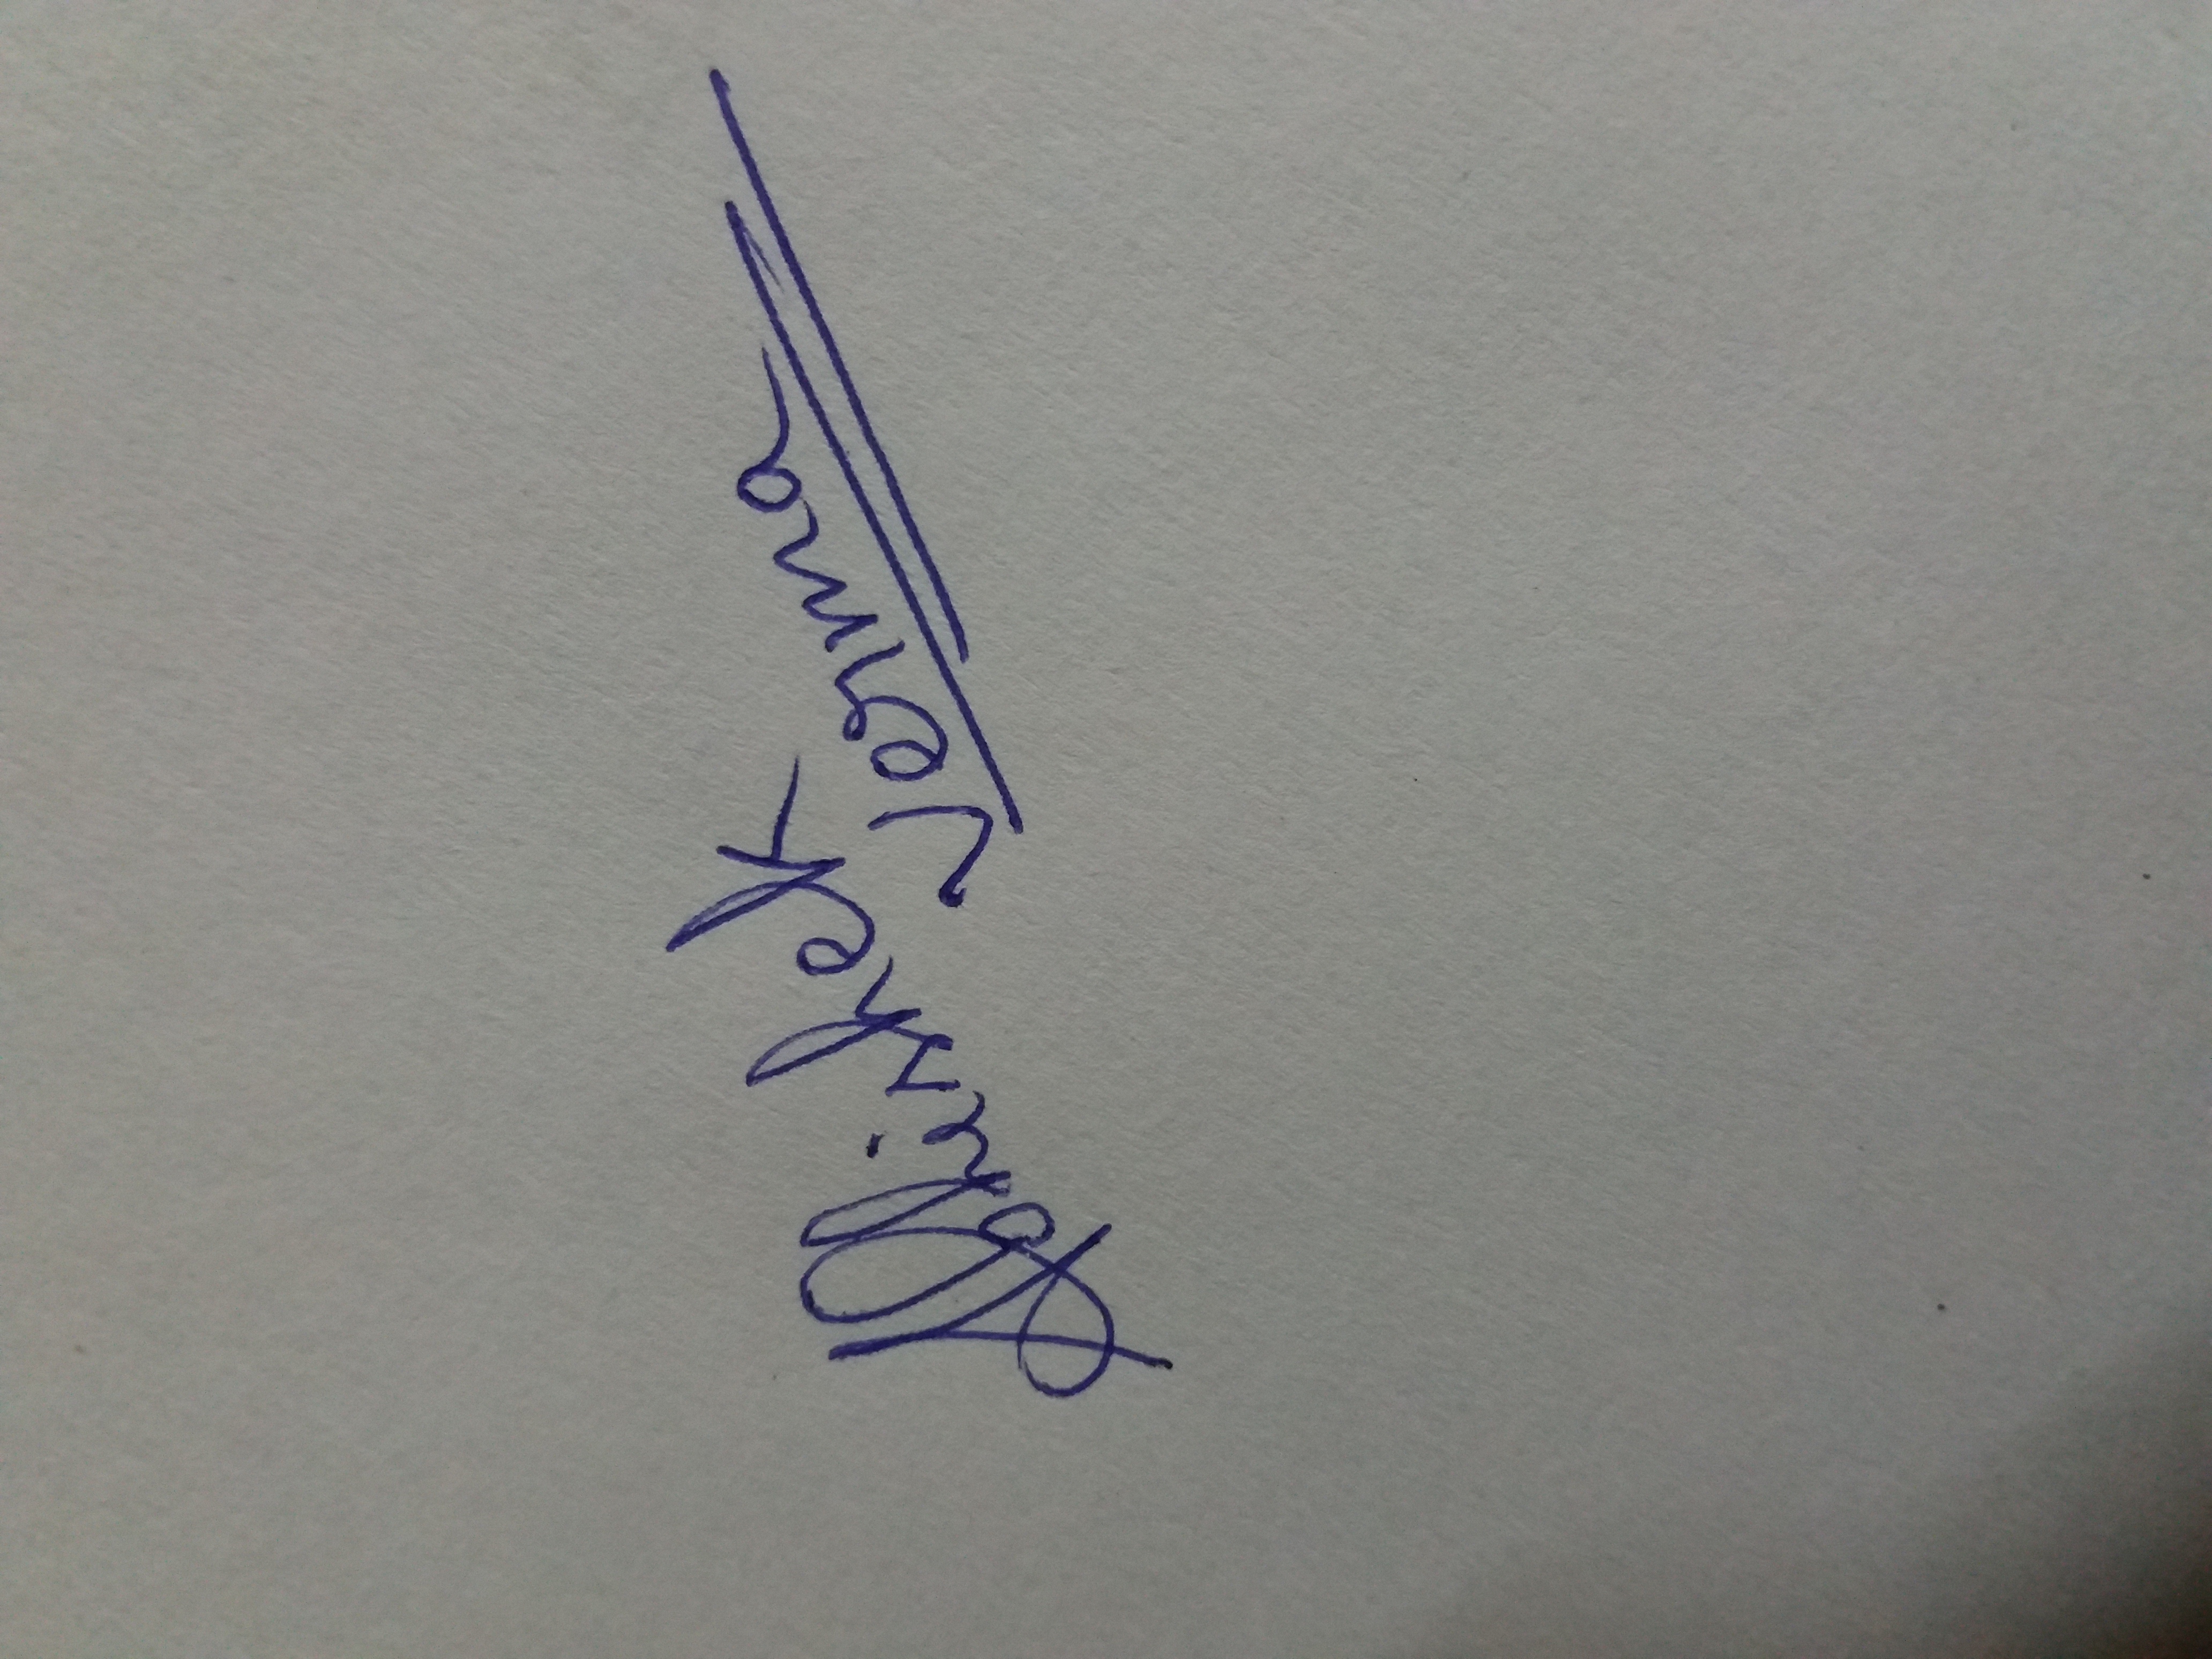 Abhishek
Verma